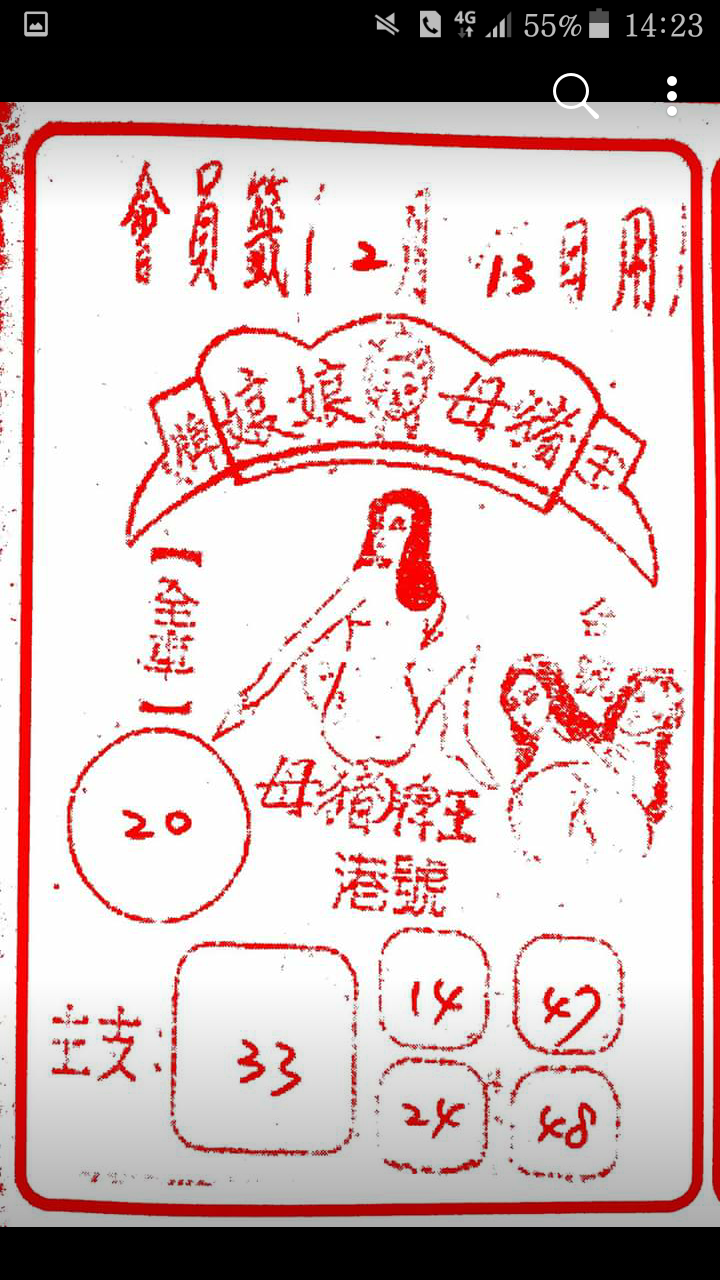 4G 55% 14:23
會員籤(2月13日用)
牌娘娘 母豬王
【全車】
台號
20
母豬牌王
港號
主支:
33
14 47
24 48